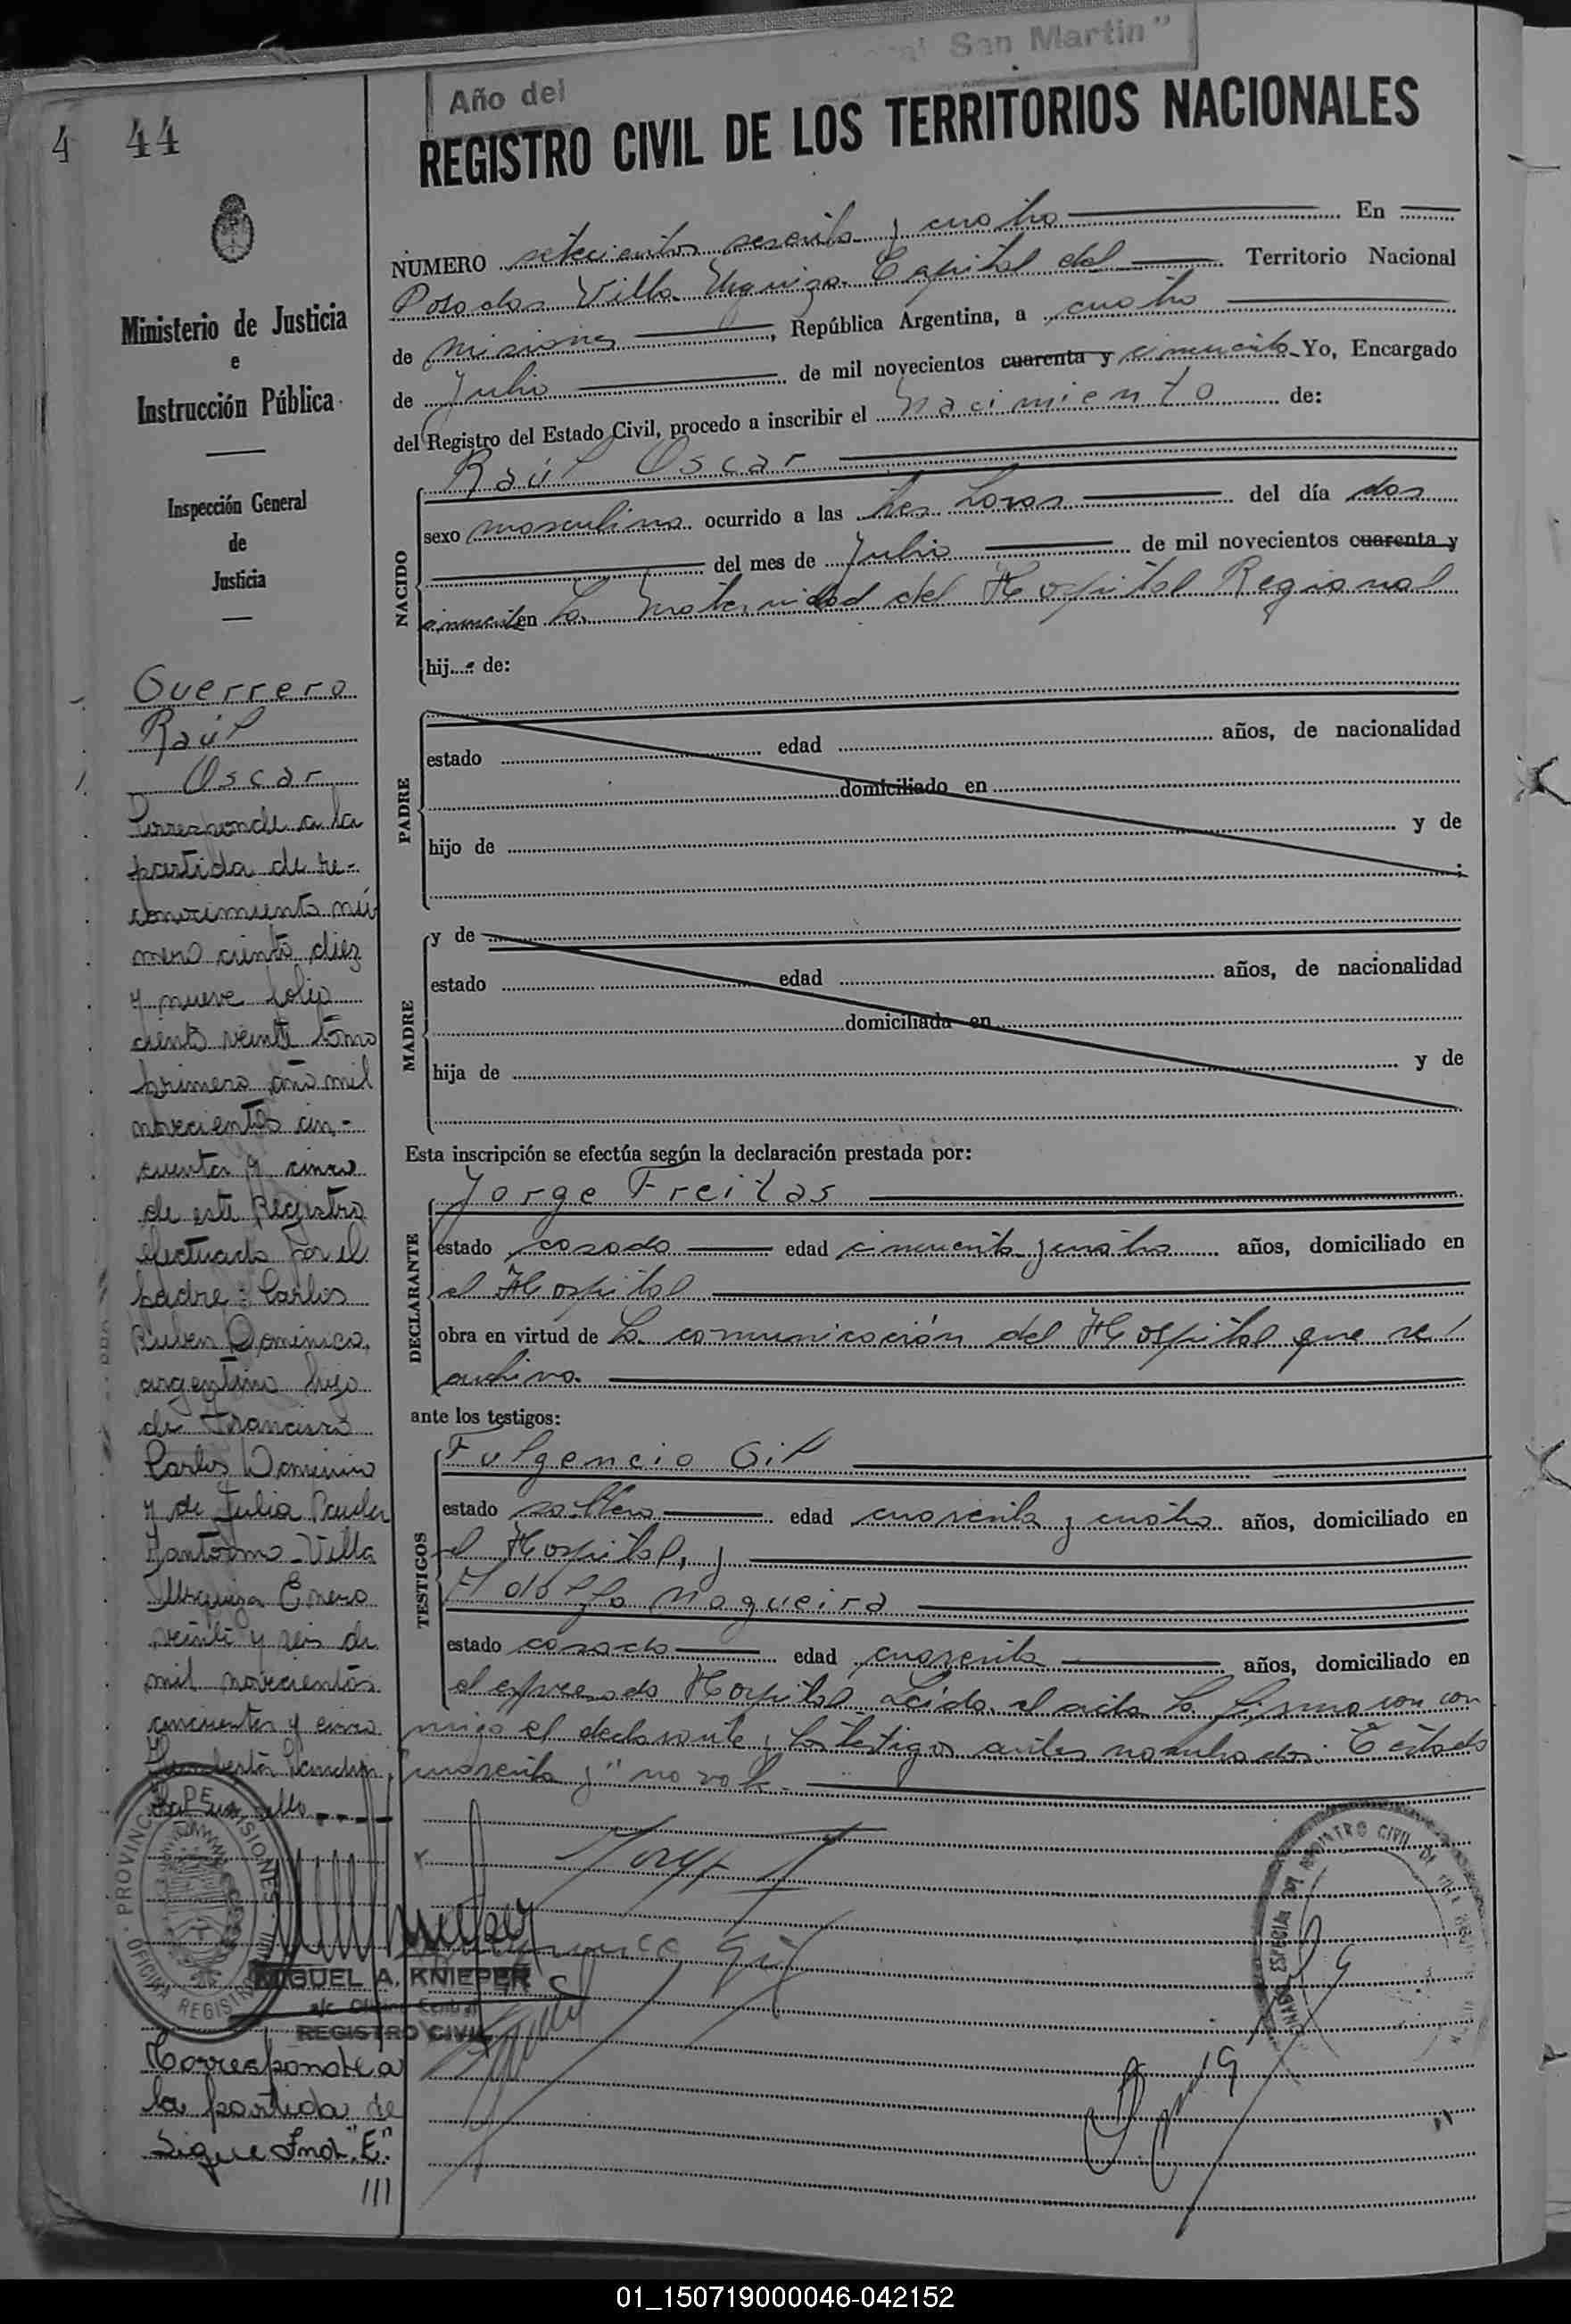 Año del "
San Martin"
4 44
REGISTRO CIVIL DE LOS TERRITORIOS NACIONALES
Ministerio de Justicia
e
Instrucción Pública
Inspección General
de
Justicia
NUMERO setecientos sesenta y cuatro En
Posadas Villa Urquiza Capital del Territorio Nacional
de Misiones, República Argentina, a cuatro
de Julio de mil novecientos cuarenta y cincuenta Yo, Encargado
del Registro del Estado Civil, procedo a inscribir el Nacimiento de:
NACIDO
Raúl Oscar
sexo masculino ocurrido a las tres horas del día dos
del mes de Julio de mil novecientos cuarenta y
cincuenta en la Maternidad del Hospital Regional
hijo de:
PADRE
estado edad años, de nacionalidad
domiciliado en
hijo de y de
MADRE
y de
estado edad años, de nacionalidad
domiciliada en
hija de y de
Esta inscripción se efectúa según la declaración prestada por:
DECLARANTE
Jorge Freitas
estado casado edad cincuenta y cuatro años, domiciliado en
el Hospital
obra en virtud de la comunicación del Hospital que se
archiva.
ante los testigos:
TESTIGOS
Fulgencio Gil
estado soltero edad cuarenta y cuatro años, domiciliado en
el Hospital, y
Adolfo Nogueira
estado casado edad cuarenta años, domiciliado en
el expresado Hospital Leída el acta la firman con
migo el declarante y los testigos antes nombrados. Testado
"cuarenta y" no vale.
Guerrero
Raúl
Oscar
Corresponde a la
partida de re-
conocimiento nú
mero ciento diez
y nueve folio
ciento veinte tomo
primero año mil
novecientos cin-
cuenta y cinco
de este Registro
efectuado por el
padre: Carlos
Ruben Dominico,
argentino hijo
de Francisco
Carlos Dominico
y de Julia Paula
Villa
Urquiza Enero
veinte y seis de
mil novecientos
cincuenta y cinco
Hay un sello
PROVINCIA DE MISIONES
OFICINA REGISTRO
MIGUEL A. KNIEPER
a/c Oficina Central
REGISTRO CIVIL
Corresponde a
la partida de
Sigue Ind. "E."
///
REGISTRO CIVIL
ESPECIAL
01_150719000046-042152